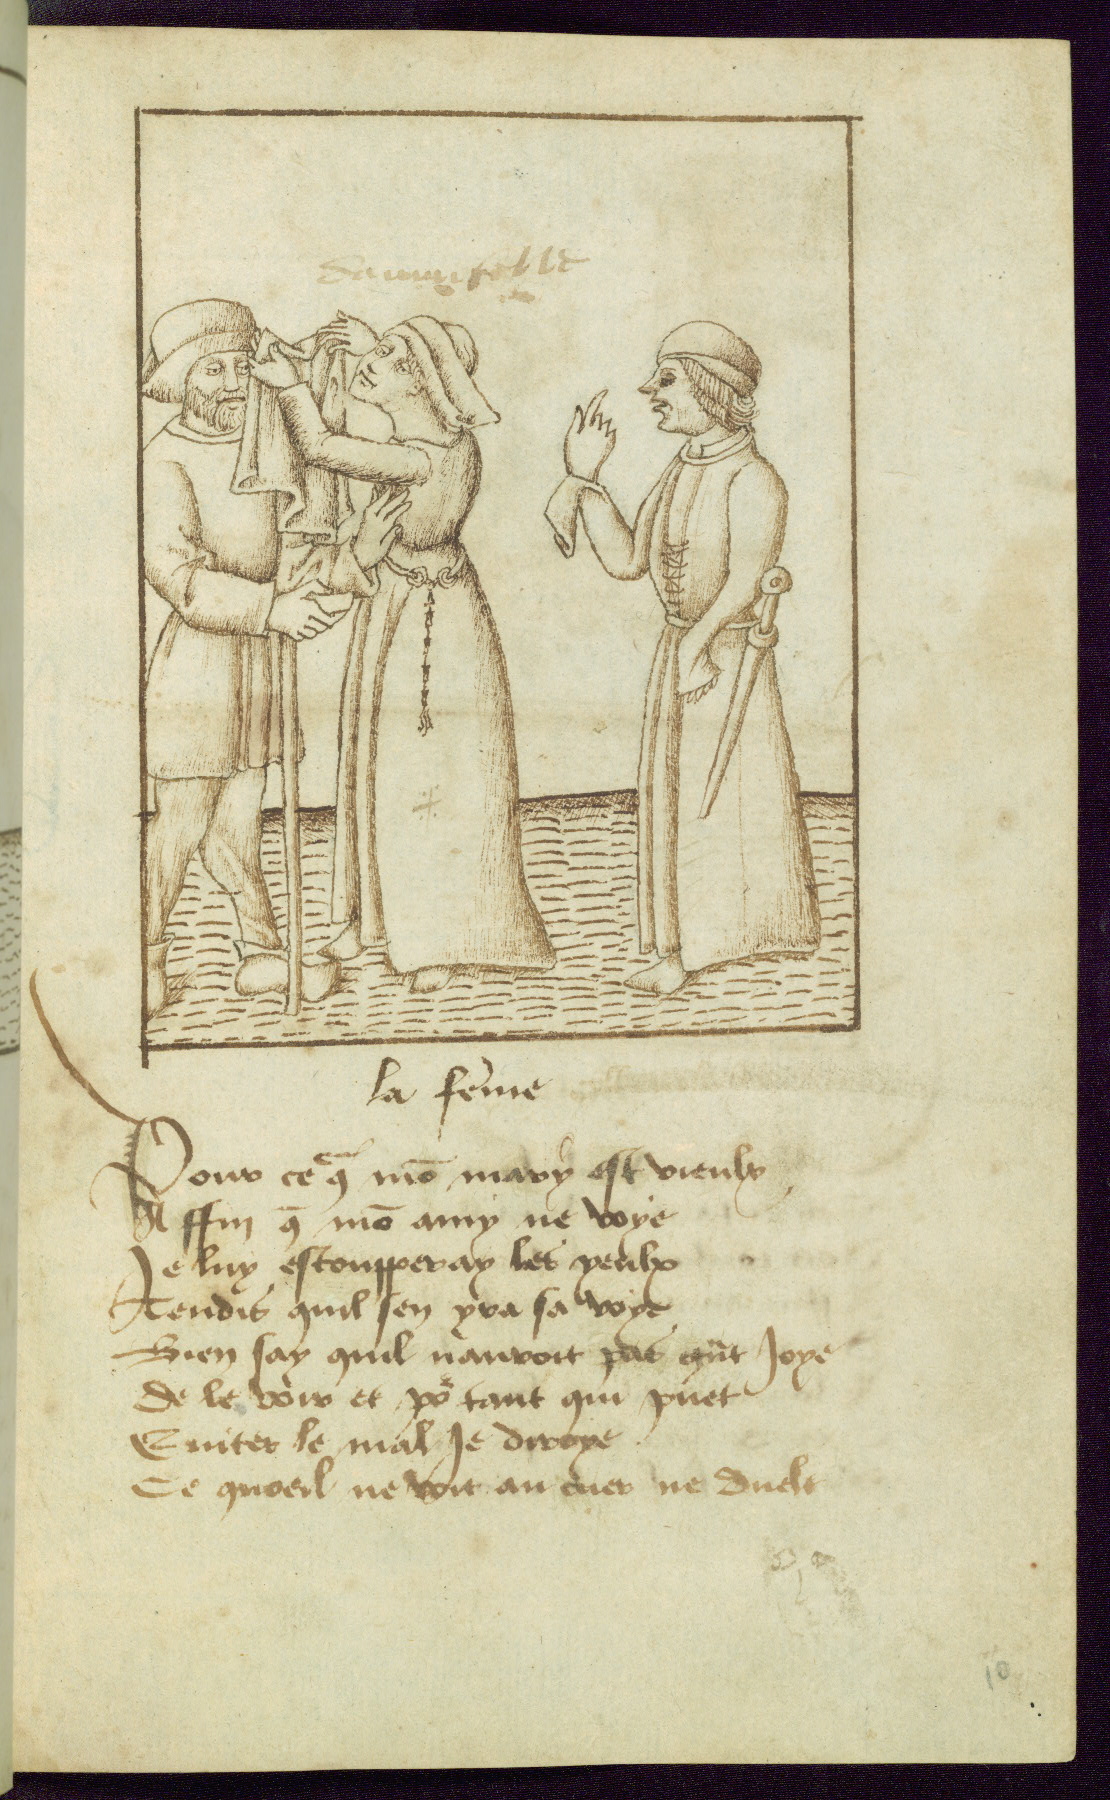 Damoiselle
la fẽme
Pour ce q̃ mõ mary est vieulx
Affin q̃ mõ amy ne voye
Je luy estoupperay les yeulx
Tendis quil sen yra sa voye
Bien say quil nauroit pas grãt Joye
De le voir et po tant qui puet
Euiter le mal Je diroye
Ce quoeil ne voit au cuer ne duelt
10